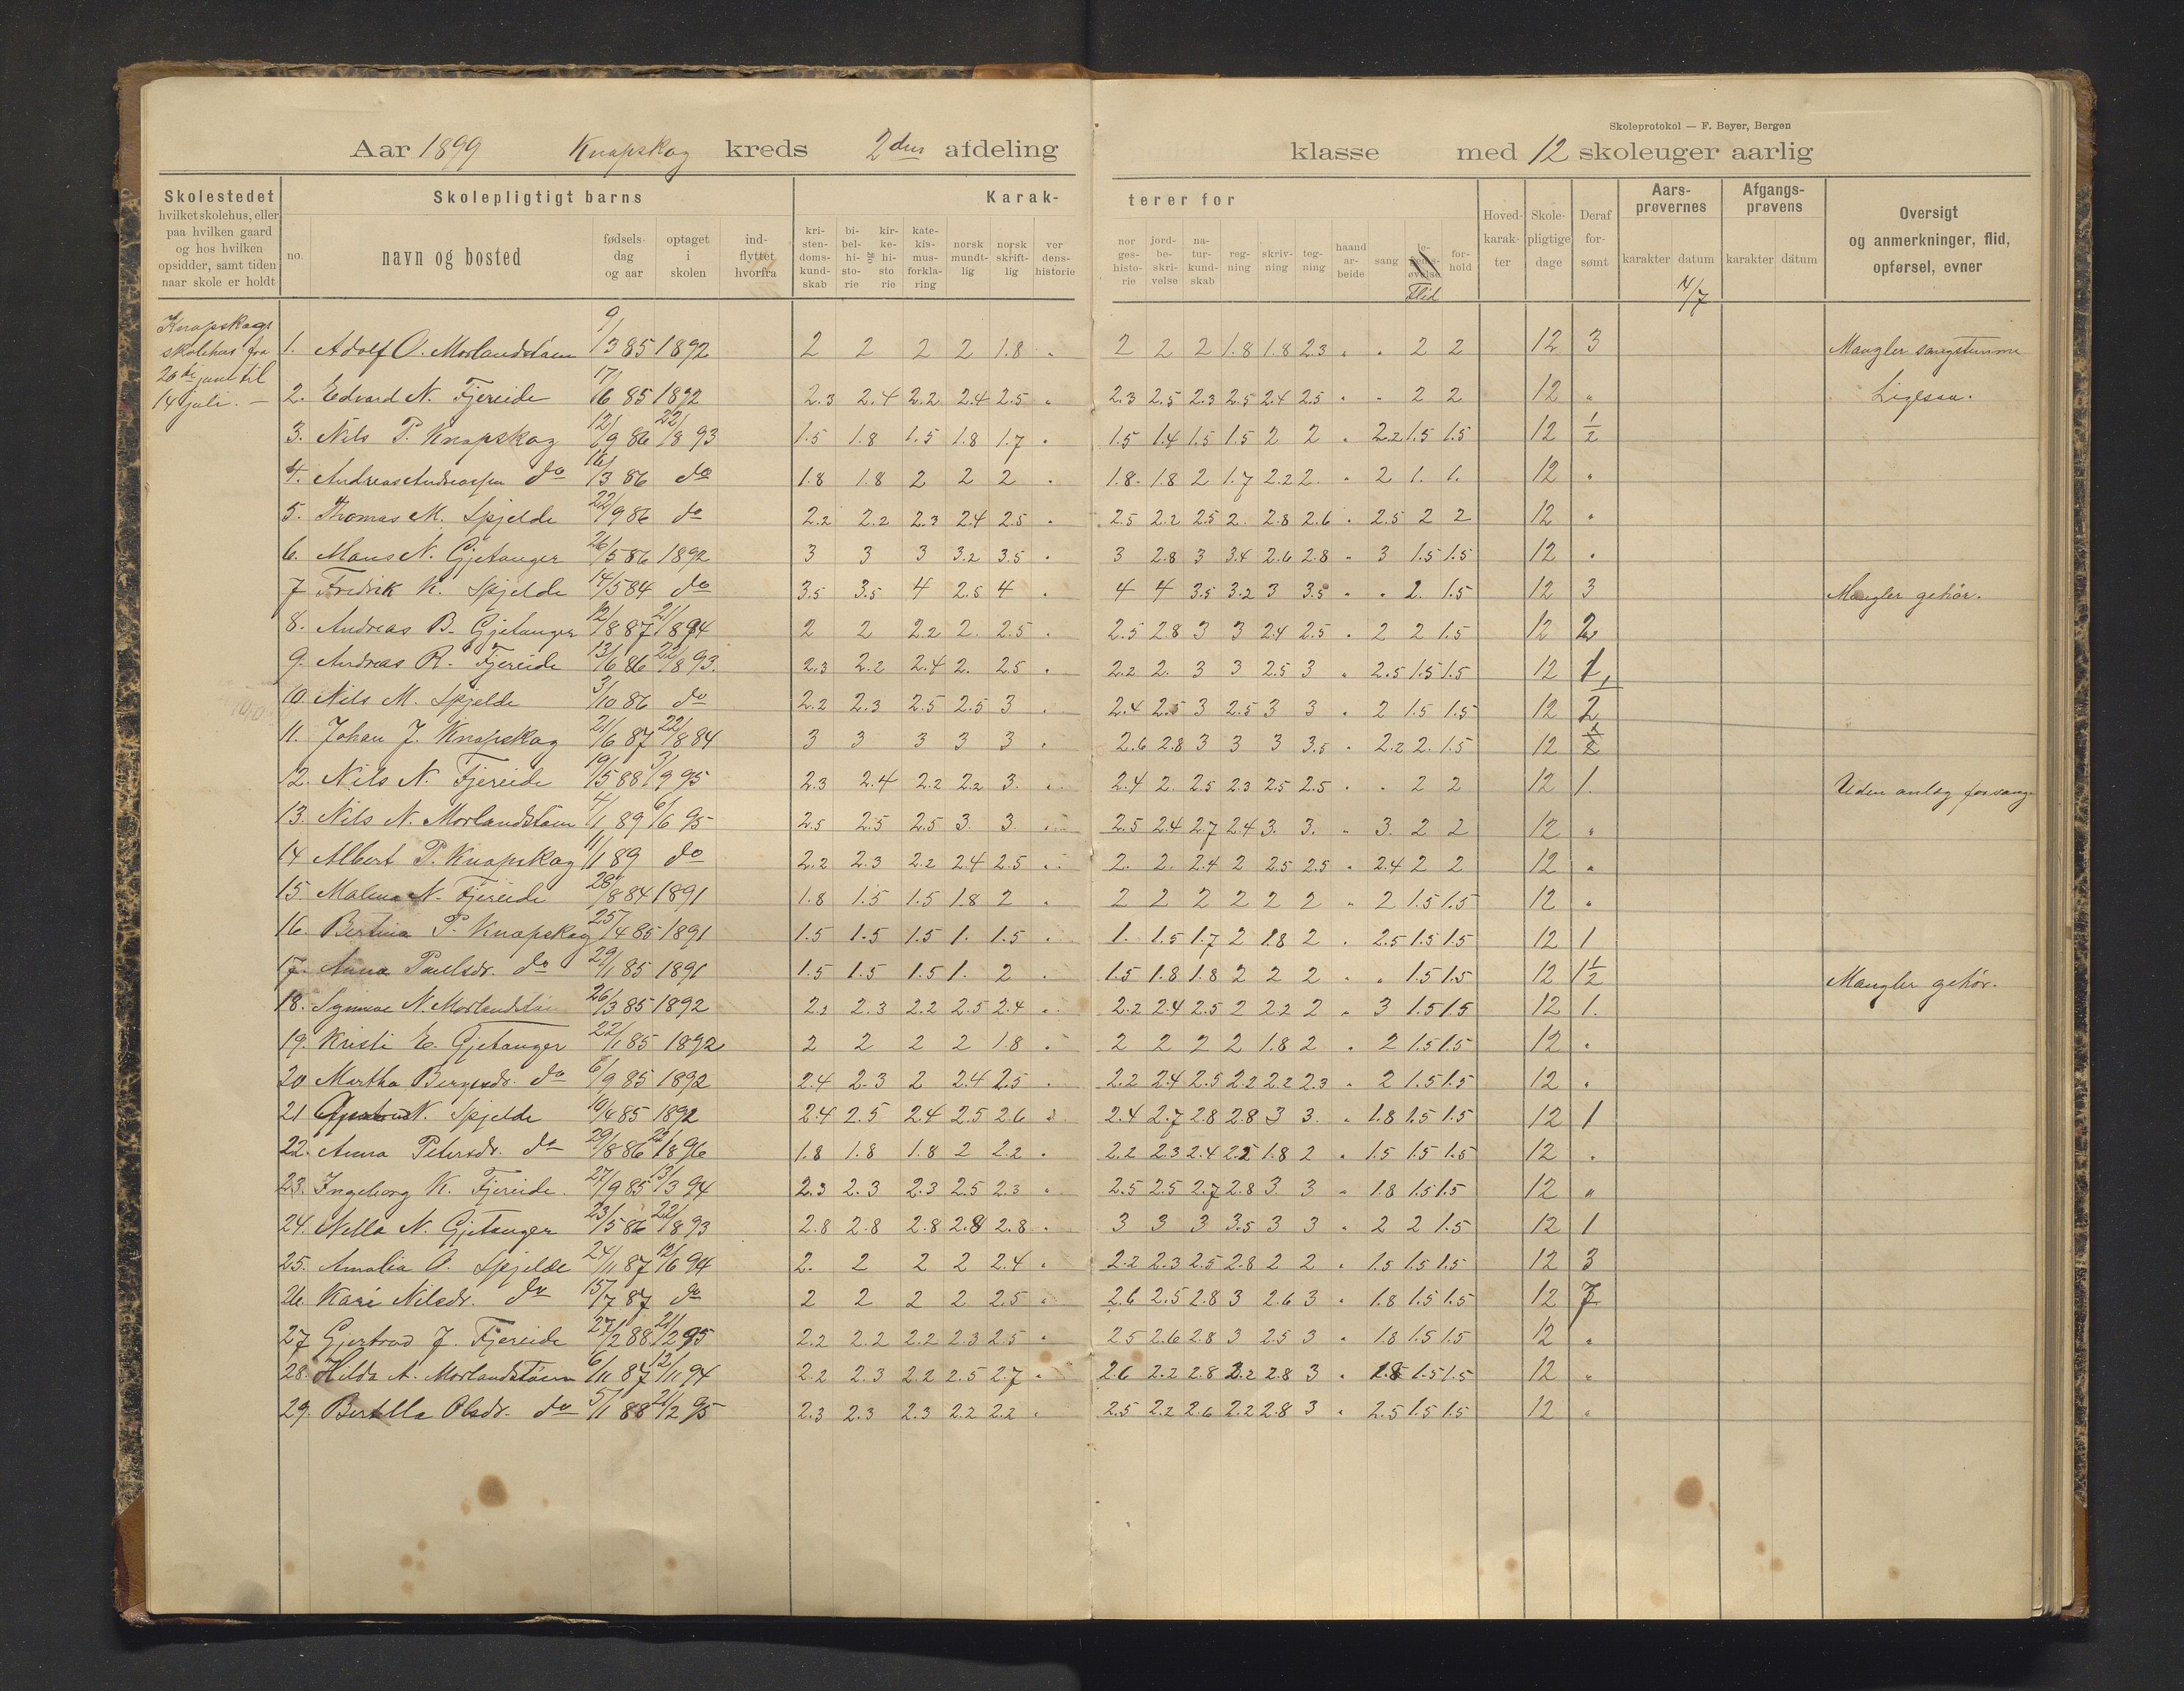 Skoleprotokol — F. Beyer, Bergen
Aar 1899 Knapskog kreds 2den afdeling klasse med 12 skoleuger aarlig
Skolestedet
hvilket skolehus, eller
paa hvilken gaard
og hos hvilken
opsidder, samt tiden
naar skole er holdt
Skolepligtigt barns
no.
navn og bosted
fødsels-
dag
og aar
optaget
i
skolen
ind-
flyttet
hvorfra
Karak-
terer for
kri-
sten-
doms-
kund-
skab
bi-
bel-
hi-
sto-
rie
og
kir-
ke-
hi-
sto
rie
kate-
kis-
mus-
forkla-
ring
norsk
mundt-
lig
norsk
skrift-
lig
ver
dens-
historie
nor
ges-
histo-
rie
jord-
be-
skri-
velse
na-
tur-
kund-
skab
reg-
ning
skriv-
ning
teg-
ning
haand
ar-
beide
sang
le-
gems-
øvelse
Flid
for-
hold
Hoved-
karak-
ter
Skole-
pligtige
dage
Deraf
for-
sømt
Aars-
prøvernes
karakter datum
14/7
Afgangs-
prøvens
karakter datum
Oversigt
og anmerkninger, flid,
opførsel, evner
Knapskogs
skolehus fra
20de juni til
14 juli. —
1. Adolf O. Morlandstøen 9/3 85 1892 2 2 2 2 1.8 „ 2 2 2 1.8 1.8 2.3 „ „ 2 2 12 3 Mangler sangstemme
2. Edvard N. Fjereide 17/6 85 1892 2.3 2.4 2.2 2.4 2.5 „ 2.3 2.5 2.3 2.5 2.4 2.5 „ „ 2 2 12 „ Ligesaa.
3. Nils P. Knapskog 12/9 86 22/8 93 1.5 1.8 1.5 1.8 1.7 „ 1.5 1.4 1.5 1.5 2 2 „ 2.2 1.5 1.5 12 1/2
4. Andreas Andreassen do 16/3 86 do 1.8 1.8 2 2 2 „ 1.8 1.8 2 1.7 2.2 2 „ 2 1. 1. 12 „
5. Thomas M. Spjelde 22/9 86 do 2.2 2.2 2.3 2.4 2.5 „ 2.5 2.2 2.5 2. 2.8 2.6 „ 2.5 2 2 12 „
6. Mons N. Gjetanger 26/5 86 1892 3 3 3 3.2 3.5 „ 3 2.8 3 3.4 2.6 2.8 „ 3 1.5 1.5 12 „
7 Fredrik K. Spjelde 14/5 84 do 3.5 3.5 4 2.5 4 „ 4 4 3.5 3.2 3 3.5 „ „ 2. 1.5 12 3 Mangler gehør.
8. Andreas B. Gjetanger 12/8 87 21/8 94 2 2 2.2 2. 2.5 „ 2.5 2.8 3 3 2.4 2.5 „ 2 2 1.5 12 2
9. Andreas R. Fjereide 13/6 86 22/8 93. 2.3 2.2 2.4 2. 2.5 „ 2.2 2. 3 3 2.5 3 „ 2.5 1.5 1.5 12 1
10. Nils M. Spjelde 3/10 86 do 2.2 2.3 2.5 2.5 3 „ 2.4 2.5 3 2.5 3 3 „ 2 1.5 1.5 12 2
11. Johan J. Knapskog 21/6 87 22/8 84 3 3 3 3 3 „ 2.6 2.8 3 3 3 3.5 „ 2.2 2. 1.5 12 1/2
12. Nils N. Fjereide 19/5 88 3/9 95 2.3 2.4 2.2 2.2 3. „ 2.4 2. 2.5 2.3 2.5 2.5 „ „ 2 2 12 1. Uden anlæg for sang
13. Nils N. Morlandstøen 4/1 89 6/6 95 2.5 2.5 2.5 3. 3. „ 2.5 2.4 2.7 2.4 3. 3. „ 3. 2 2 12 „
14 Albert P. Knapskog 11/1 89 do 2.2 2.3 2.2 2.4 2.5 „ 2. 2. 2.4 2 2.5 2.5 „ 2.4 2 2 12 „
15 Malena N. Fjereide 28/8 84 1891 1.8 1.5 1.5 1.8 2 „ 2 2 2 2 2 2 „ 2 1.5 1.5 12 „
16. Bertina P. Knapskog 25/4 85 1891 1.5 1.5 1.5 1. 1.5 „ 1. 1.5 1.7 2 1.8 2 „ 2.5 1.5 1.5 12 1
17. Anna Paulsdr. do 29/1 85 1891 1.5 1.5 1.5 1. 2 „ 1.5 1.8 1.8 2 2 2 „ „ 1.5 1.5 12 1 1/2 Mangler gehør.
18. Synnøve N. Morlandstøen 26/3 85 1892 2.2 2.3 2.2 2.5 2.4 „ 2.2 2.4 2.5 2 2.2 2 „ 3 1.5 1.5 12 1.
19. Kristi E. Gjetanger 22/1 85 1892 2 2 2 2 1.8 „ 2 2 2 2 1.8 2 „ 2 1.5 1.5 12 „
20 Martha Bergesdr. do 6/9 85 1892 2.4 2.3 2 2.4 2.5 „ 2.2 2.4 2.5 2.2 2.2 2.3 „ 2 1.5 1.5 12 „
21 Gjertrud K. Spjelde 10/4 85 1892 2.4 2.5 2.4 2.5 2.6 „ 2.4 2.7 2.8 2.8 3 3. „ 1.8 1.5 1.5 12 1
22. Anna Petersdr. do 29/8 86 22/8 96 1.8 1.8 1.8 2 2.2 „ 2.2 2.3 2.4 2.2 1.8 2 „ 1.5 1.5 1.5 12 „
23. Ingeborg K. Fjereide. 27/9 85 13/3 94 2.3 2.3 2.3 2.5 2.3 „ 2.5 2.5 2.7 2.8 3 3 „ 1.8 1.5 1.5 12 „
24. Nella N. Gjetanger 23/5 86 22/8 93 2.8 2.8 2.8 2.8 2.8 „ 3 3 3 3.5 3 3 „ 2 2 1.5 12 1
25. Amalia O. Spjelde 24/11 87 12/6 94 2. 2 2 2 2.4 „ 2.2 2.3 2.5 2.8 2 2 „ 1.5 1.5 1.5 12 3
26. Kari Nilsdr. do 15/7 87 do 2 2 2 2 2.5 „ 2.6 2.5 2.8 3 2.6 3 „ 1.8 1.5 1.5 12 7
27 Gjertrud J. Fjereide 27/2 88 21/2 95 2.2 2.2 2.2 2.3 2.5 „ 2.5 2.6 2.8 3 2.5 3 „ 1.8 1.5 1.5 12 „
28. Hilda A. Morlandstøen 6/11 87 12/11 94 2.2 2.3 2.2 2.5 2.7 „ 2.6 2.2 2.8 2.2 2.8 3 „ 1.8 1.5 1.5 12 „
29. Bertilla Olsdr. do 5/11 88 21/2 95 2.3 2.3 2.3 2.2 2.2 „ 2.5 2.2 2.6 2.2 2.8 3 „ 2.5 1.5 1.5 12 „